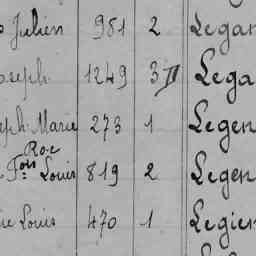 Julien 981 2 Legar
oseph 1249 3 Lega
eph Marie 273 1 Legen
Roc
Fois Louis 819 2 Legen
ie Louis 470 1 Legier